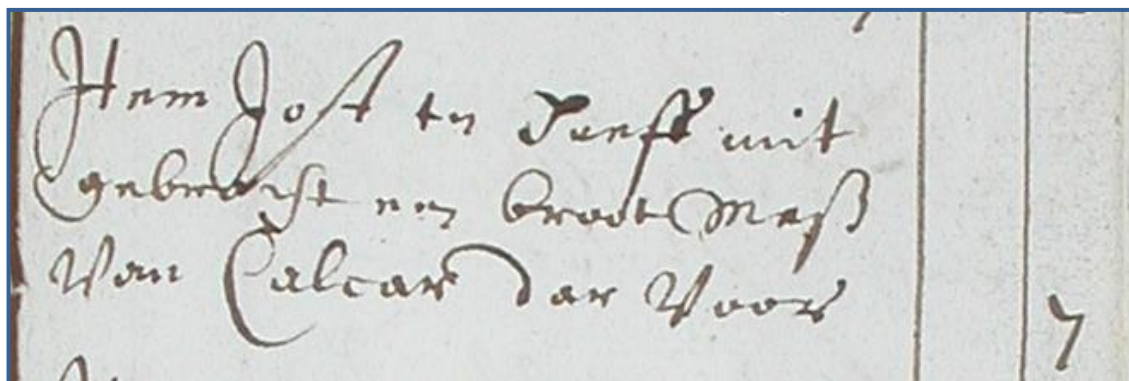 Item Jost en heefft mit
gebracht een broot Meß
Van Calcar dar Voor
7